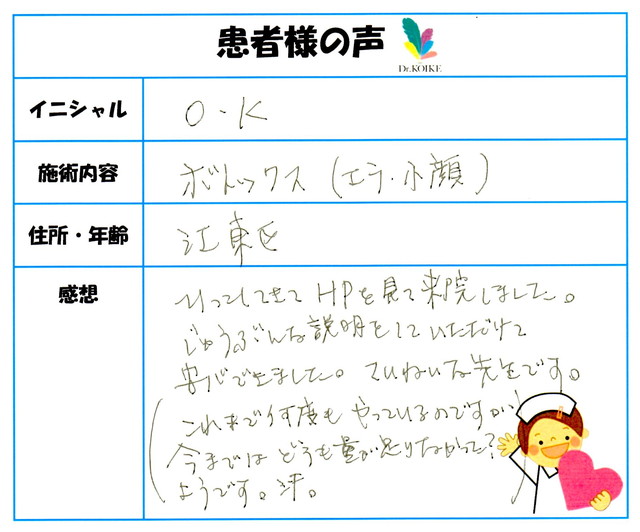 患者様の声
Dr.KOIKE
イニシャル
O・K
施術内容
ボトックス (エラ・小顔)
住所・年齢
江東区
感想
HPを見て来院しました。
じゅうぶんな説明をしていただけて
安心できました。ていねいな先生です。
(これまで何度もやっているのですが
今まではどうも量が足りなかった?
ようです。汗。